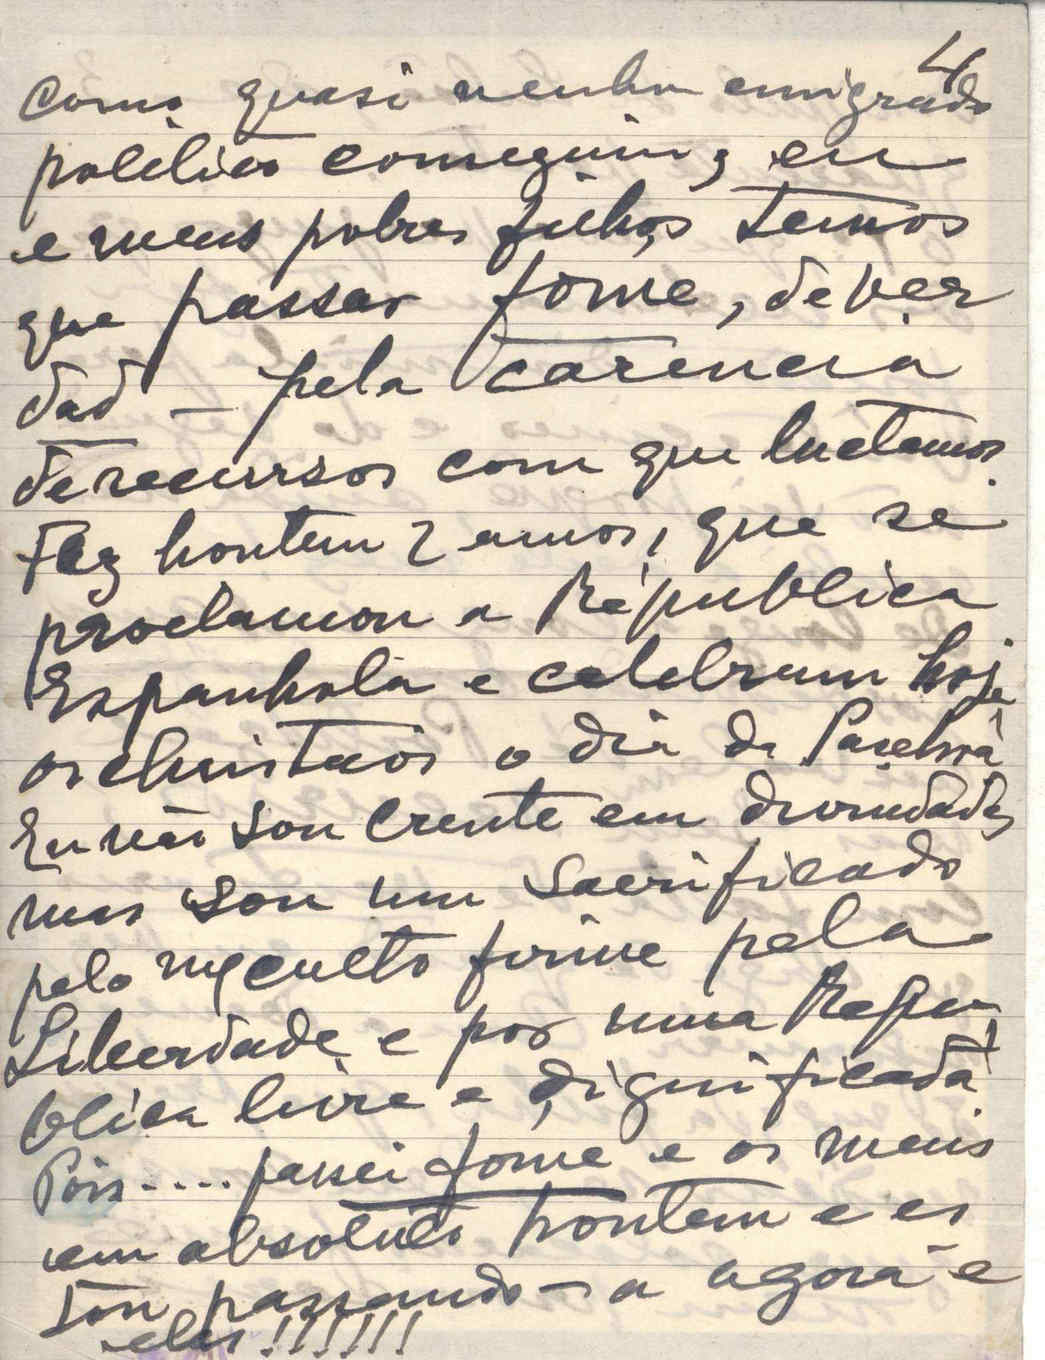 4
como quasi nenhu emigrado
politico conseguiu, eu
e meus pobres filhos temos
que passar fome, de ver
dad – pela carencia
de recursos com que luctamos
Fez hontem 2 annos, que se
proclamou a Républica
Espanhola e celebram hoje
os christãos o dia da Paschoa
Eu não sou crente em divindades
mas sou um Sacrificado
pelo meu culto firme pela
Liberdade e por uma Repu
blica livre e dignificada
Pois.... passei fome e os meus
em absoluto hontem e es
tou passando-a agora e
eles!!!!!!